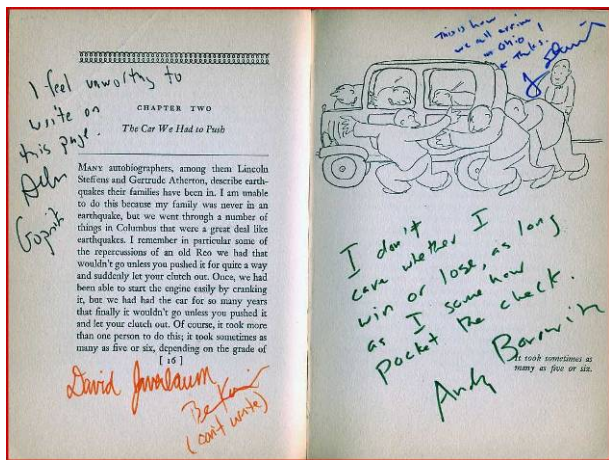 I feel unworthy to
write on
this page.
Adam
Gopnik
CHAPTER TWO
The Car We Had to Push
MANY autobiographers, among them Lincoln
Steffens and Gertrude Atherton, describe earth-
quakes their families have been in. I am unable
to do this because my family was never in an
earthquake, but we went through a number of
things in Columbus that were a great deal like
earthquakes. I remember in particular some of
the repercussions of an old Reo we had that
wouldn't go unless you pushed it for quite a way
and suddenly let your clutch out. Once, we had
been able to start the engine easily by cranking
it, but we had had the car for so many years
that finally it wouldn't go unless you pushed it
and let your clutch out. Of course, it took more
than one person to do this; it took sometimes as
many as five or six, depending on the grade of
[16]
David Javerbaum
(can't write)
This is how
we all arrive
in Ohio!
Thanks.
I don't
care whether I
win or lose, as long
as I somehow
pocket the check.
Andy Borowitz
It took sometimes as
many as five or six.